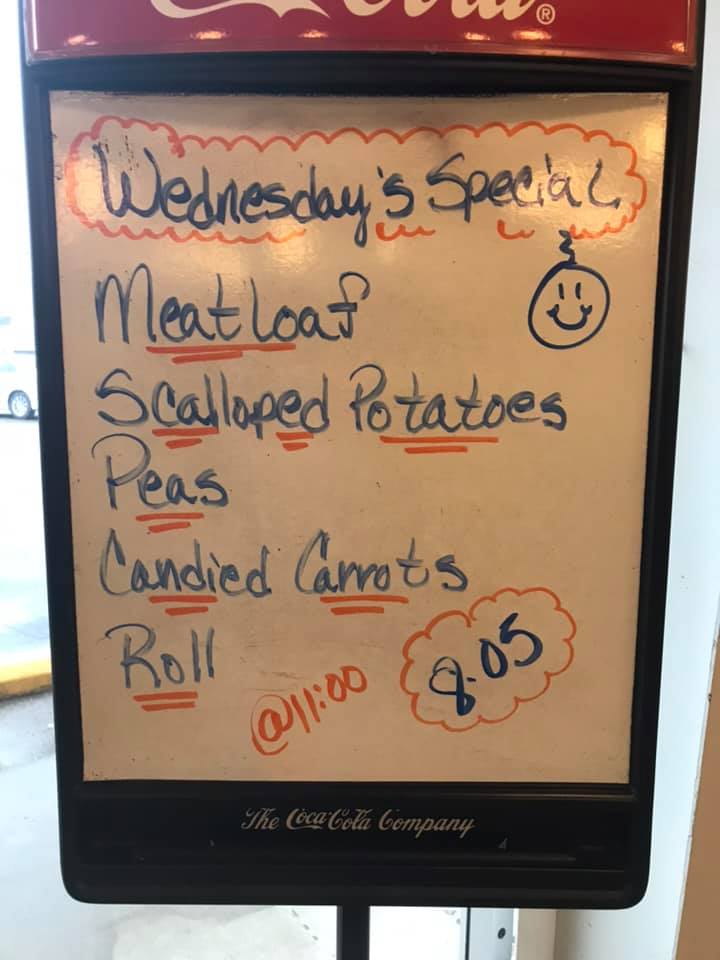 Cola®
Wednesday's Special
Meatloaf
Scalloped Potatoes
Peas
Candied Carrots
Roll
@11:00
8.05
The Coca-Cola Company